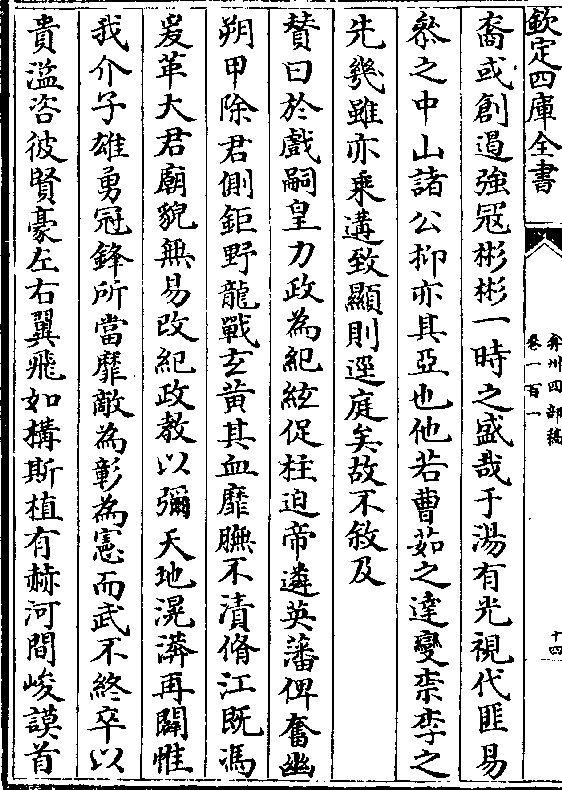 欽定四庫全書
弇州四部稿
卷一百一
十四
裔或創遏強冦彬彬一時之盛哉于湯有光視代匪易
叅之中山諸公抑亦其亞也他若曹茹之達變柰李之
先幾雖亦乘遘致顯則逕庭矣故不敘及
賛曰於戲嗣皇力政為紀絃促柱迫帝遴英藩俾奮幽
朔甲除君側鉅野龍戰玄黄其血靡膴不漬脩江既馮
爰革大君廟貌無易改紀政教以彌天地滉瀁再闢惟
我介子雄勇冠鋒所當靡敵為彰為憲而武不終卒以
貴溢咨彼賢豪左右翼飛如搆斯植有赫河間峻謨首